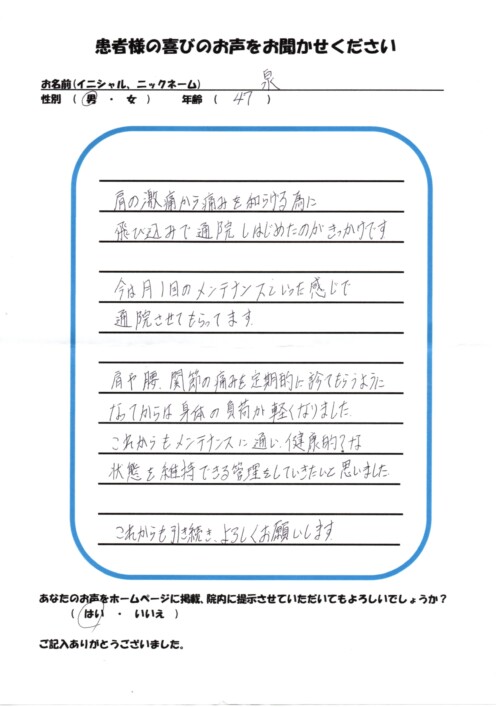 患者様の喜びのお声をお聞かせください
お名前(イニシャル、ニックネーム) 泉
性別 ( 男 ・ 女 ) 年齢 ( 47 )
肩の激痛から痛みを和らげる為に
飛び込みで通院しはじめたのがきっかけです
今は月1回のメンテナンスといった感じで
通院させてもらってます.
肩や膝、関節の痛みを定期的に診てもらうように
なってからは身体の負荷が軽くなりました.
これからもメンテナンスに通い、健康的?な
状態を維持できる管理をしていきたいと思いました
これからも引き続き、よろしくお願いします.
あなたのお声をホームページに掲載、院内に提示させていただいてもよろしいでしょうか?
( はい ・ いいえ )
ご記入ありがとうございました。